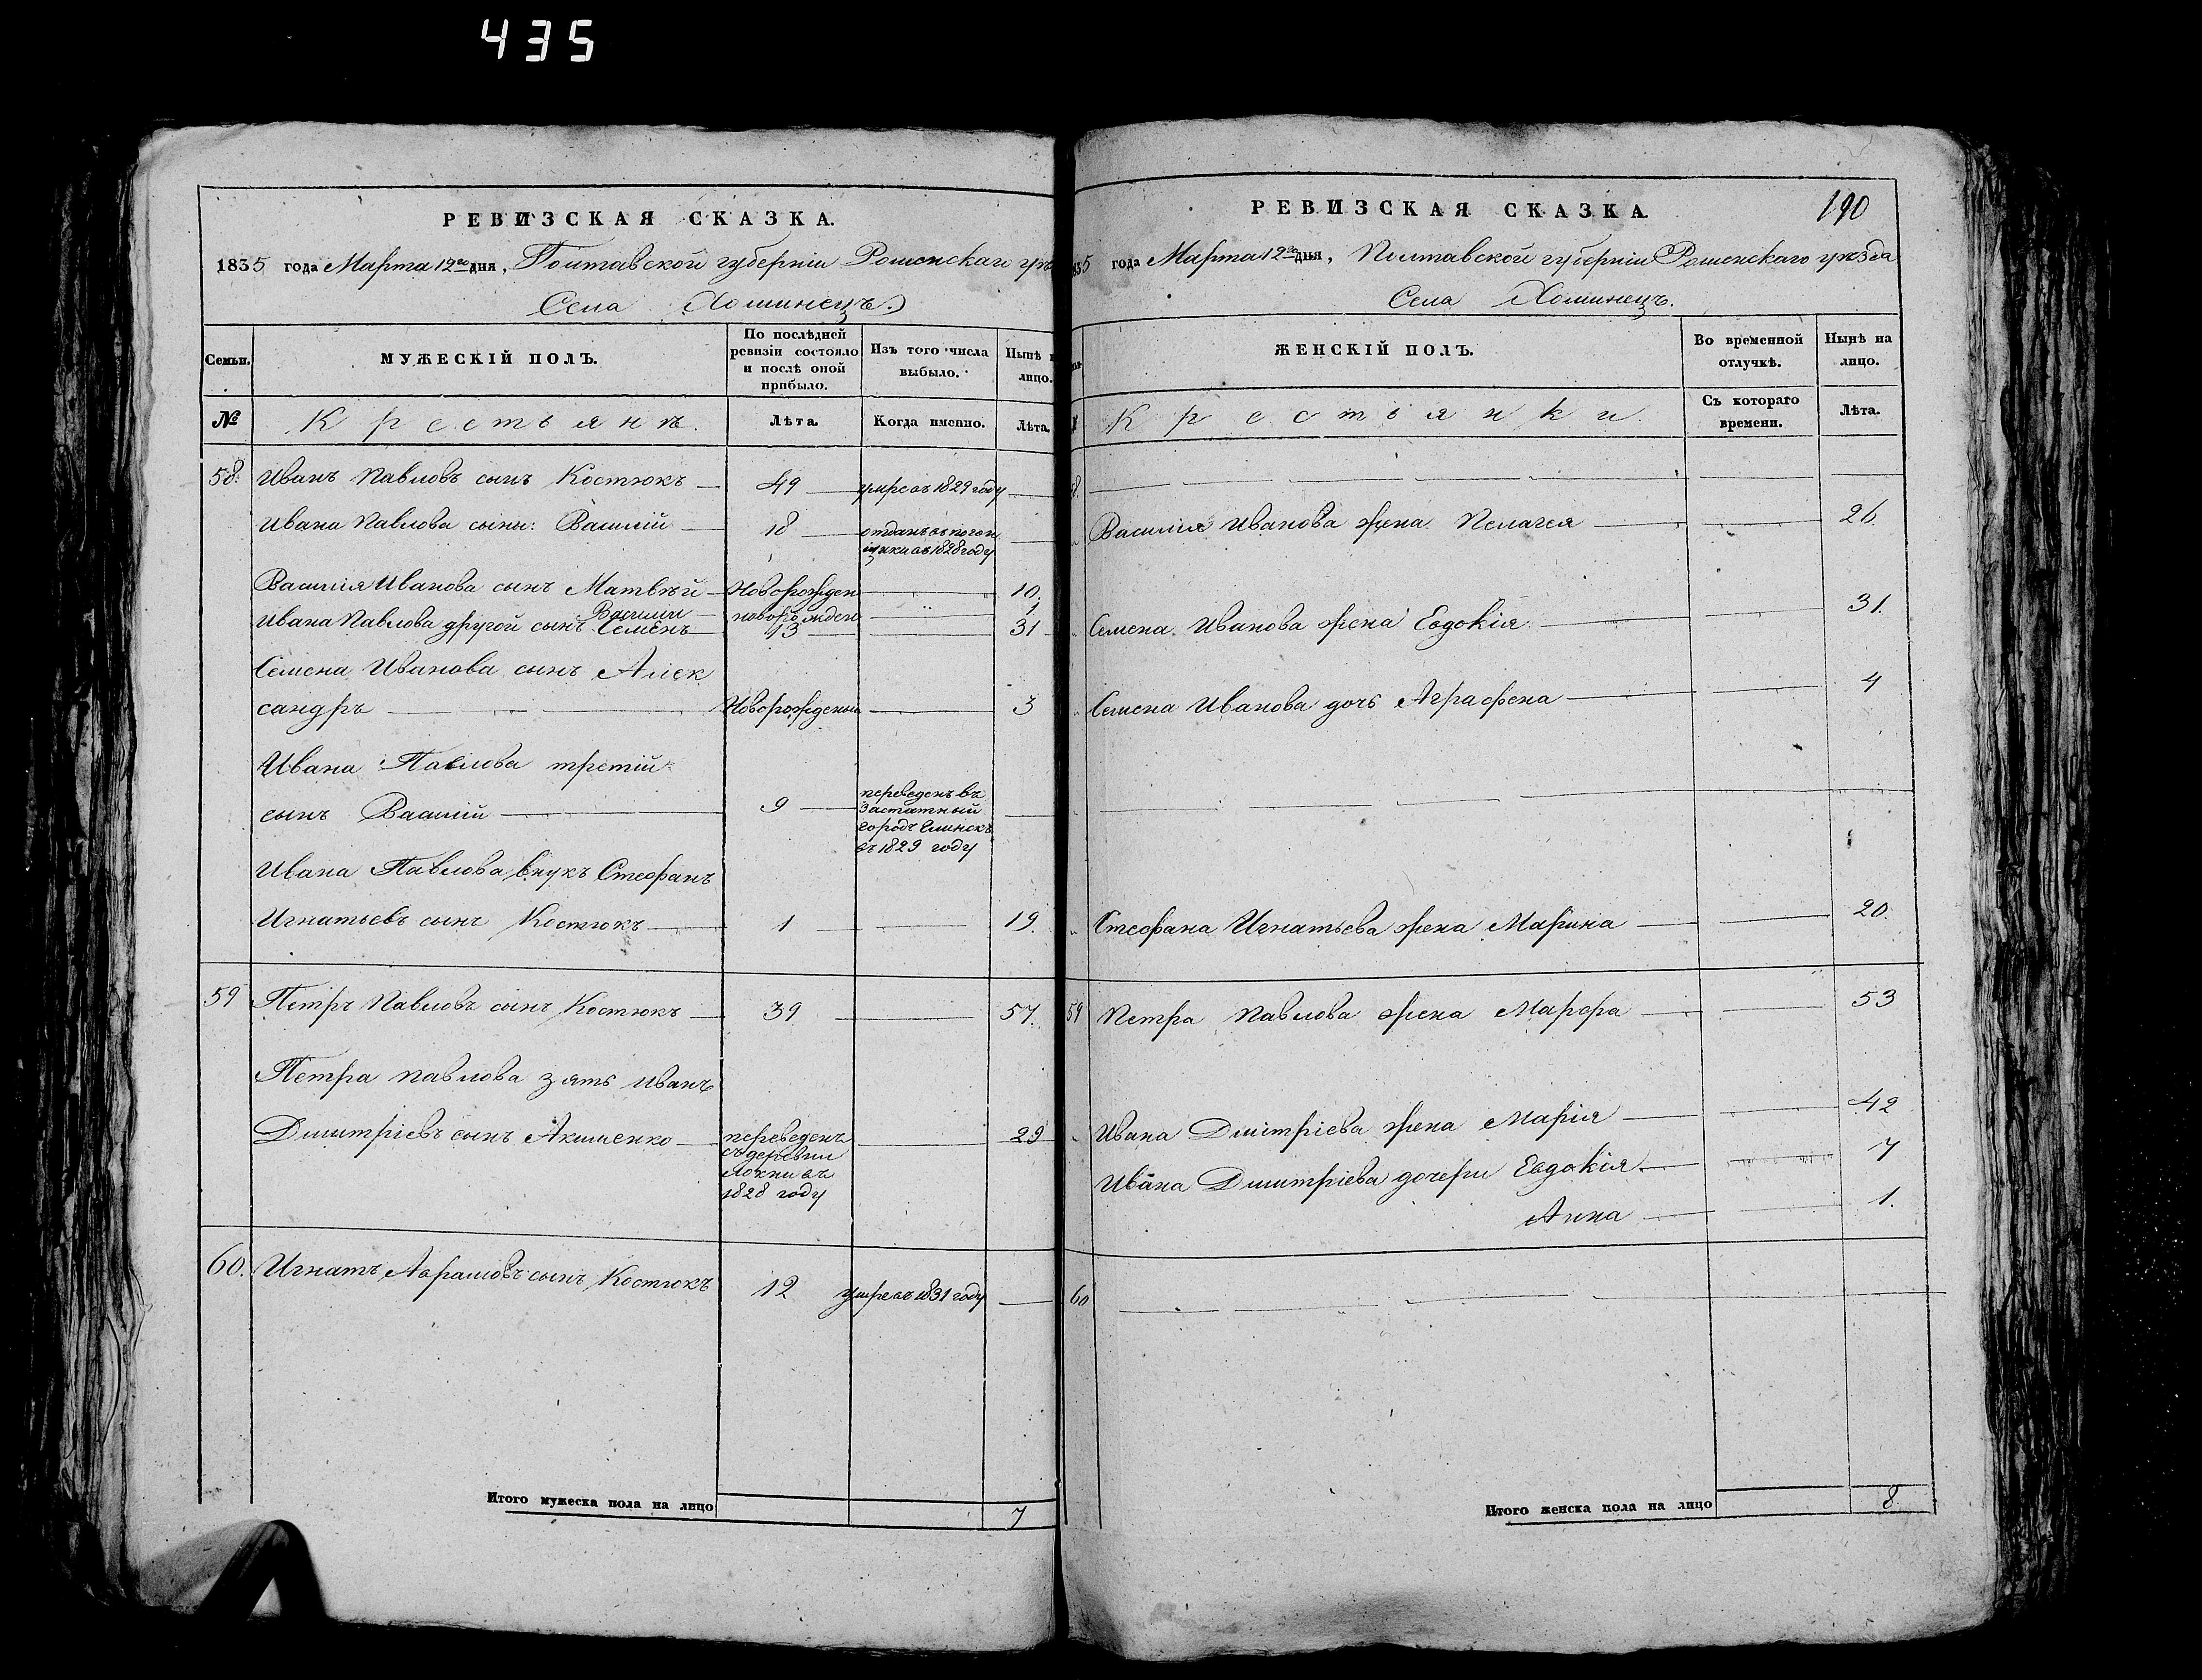 435
РЕВИЗСКАЯ СКАЗКА.
1835 года Марта 12го дня, Полтавской губерніи Роменскаго уѣ
Села Хоминецъ.
Семьи.
МУЖЕСКІЙ ПОЛЪ.
По послѣдней ревизіи состояло и послѣ оной прибыло.
Изъ того числа выбыло.
Нынѣ н лицо.
№
Крестьянъ.
Лѣта.
Когда именно.
Лѣта.
58. Иванъ Павловъ сынъ Костюкъ 49 умре въ 1829 году
Ивана Павлова сынъ: Василій 18 отданъ въ погон
щики въ 1828 году
Василія Иванова сынъ Матвѣй Новорожден 10.
Василій новорожден 1
Ивана Павлова другой сынъ Семенъ 13 31
Семена Иванова сынъ Алек
сандръ Новорожденый 3
Ивана Павлова третій
сынъ Василій 9 переведенъ въ
Застатный
городъ Глинскъ
въ 1829 году
Ивана Павлова внукъ Стефанъ
Игнатьевъ сынъ Костюкъ 1 19.
59 Петръ Павловъ сынъ Костюкъ 39 57.
Петра Павлова зять Иванъ
Дмитріевъ сынъ Акименко переведенъ 29
съ деревни
Локни въ
1828 году
60. Игнатъ Аврамовъ сынъ Костюкъ 12 умре въ 1831 году
Итого мужеска пола на лицо 7
РЕВИЗСКАЯ СКАЗКА. 190
835 года Марта 12го дня, Полтавской губерніи Роменскаго уѣзда
Села Хоминецъ.
ЖЕНСКІЙ ПОЛЪ.
Во временной отлучкѣ.
Нынѣ на лицо.
Крестьянки
Съ котораго времени.
Лѣта.
8.
Василія Иванова жена Пелагея 26.
Семена Иванова жена Евдокія 31.
Семена Иванова дочь Аграфена 4
Стефана Игнатьева жена Марина 20.
59 Петра Павлова жена Марфа 53
Ивана Дмитріева жена Марія 42
Ивана Дмитріева дочери Евдокія 7
Анна 1.
60
Итого женска пола на лицо 8.